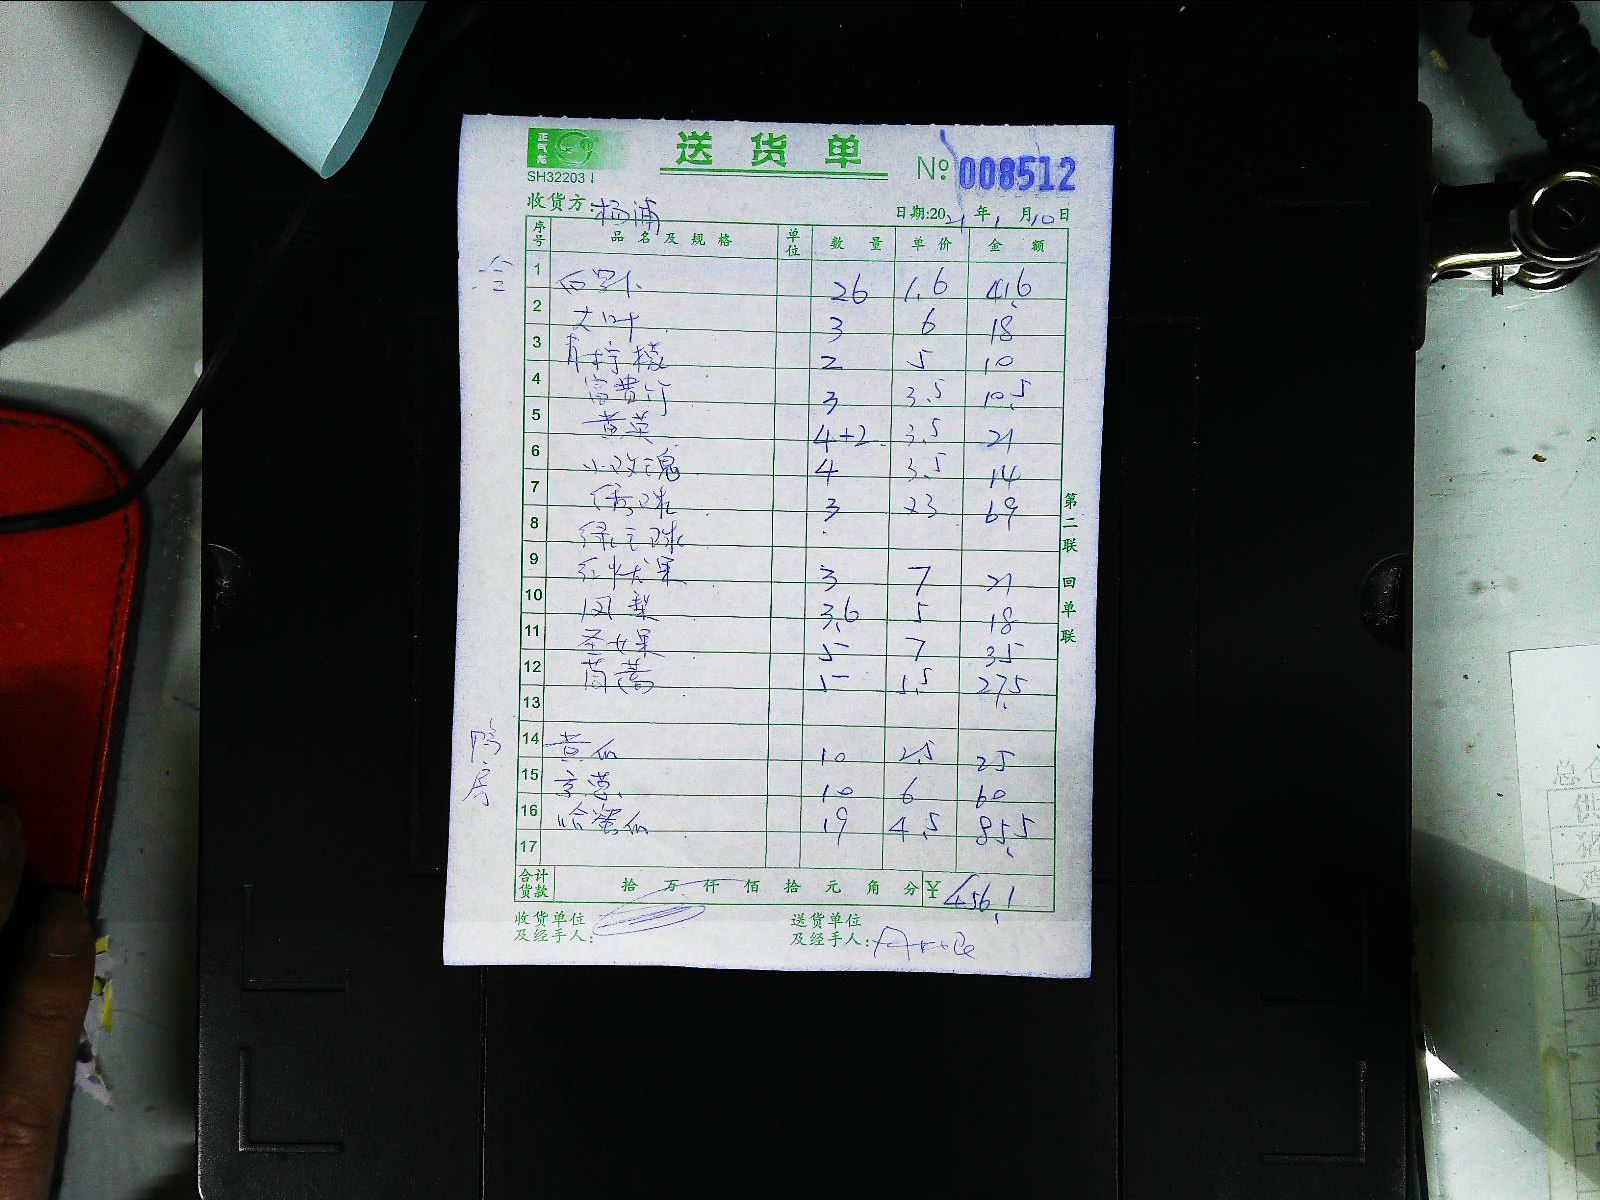 正气龙
SH32203
送货单
№ 008512
收货方: 杨浦
日期:2021年1月10日
序号 品名及规格 单位 数量 单价 金额
冷
1 白罗卜 26 1.6 41.6
2 大叶 3 6 18
3 青柠檬 2 5 10
4 富贵竹 3 3.5 10.5
5 黄英 4+2 3.5 21
6 小玫瑰 4 3.5 14
7 3 23 69
8
9 红状果 3 7 21
10 凤梨 3.6 5 18
11 圣女果 5 7 35
12 茼蒿 5 5.5 27.5
13
鸭房
14 黄瓜 10 2.5 25
15 京葱 10 6 60
16 哈蜜瓜 19 4.5 85.5
17
合计货款 拾 万 仟 佰 拾 元 角 分 ¥ 456.1
收货单位及经手人:
送货单位及经手人:
第二联 回单联
总
供